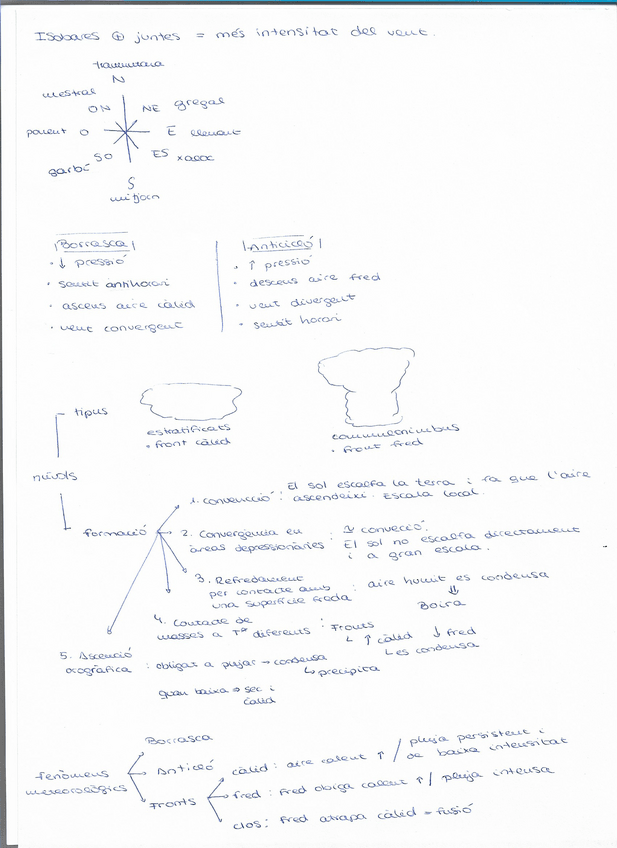 Isobares ⊕ juntes = més intensitat del vent.
tramuntana
N
mestral
ON NE gregal
ponent O E llevant
SO ES xaloc
garbí
S
mitjorn
Borrasca
· ↓ pressió
· sentit antihorari
· ascens aire càlid
· vent convergent
Anticicló
· ↑ pressió
· descens aire fred
· vent divergent
· sentit horari
tipus
estratificats
· front càlid
· front fred
núvols
formació
1. convecció : El sol escalfa la terra i fa que l'aire
ascendeixi. Escala local.
2. Convergència en
àrees depressionàries : convecció.
El sol no escalfa directament
i a gran escala.
3. Refredament
per contacte amb
una superfície freda : aire humit es condensa
⇓
Boira
4. Contacte de
masses a Tª diferents : Fronts
↳ ↑ càlid ↓ fred
↳ es condensa
5. Ascenció
orogràfica : obligat a pujar → condensa
↳ precipita
quan baixa ⇒ sec i
càlid
fenòmens
meteorològics
Borrasca
Anticicló
Fronts
càlid : aire calent ↑ / pluja persistent i
de baixa intensitat
fred : Fred obliga calent ↑ / pluja intensa
clos : Fred atrapa càlid = fusió